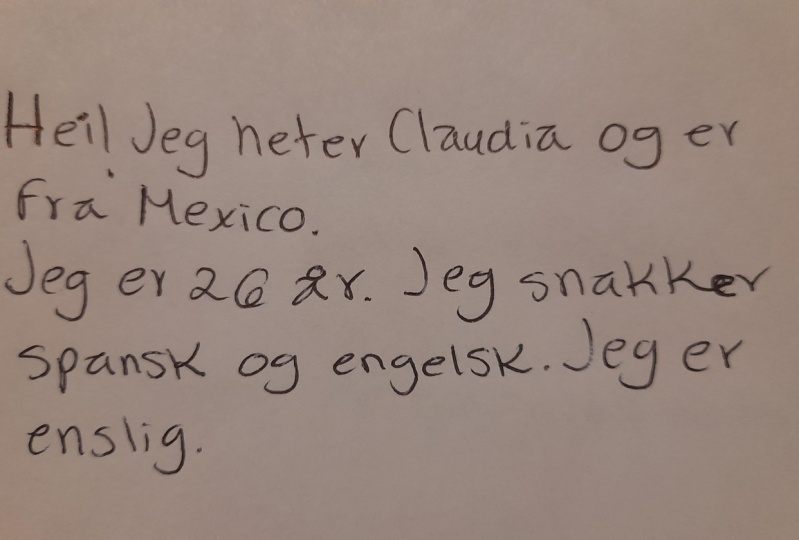 Hei! Jeg heter Claudia og er
fra Mexico.
Jeg er 26 år. Jeg snakker
spansk og engelsk. Jeg er
enslig.